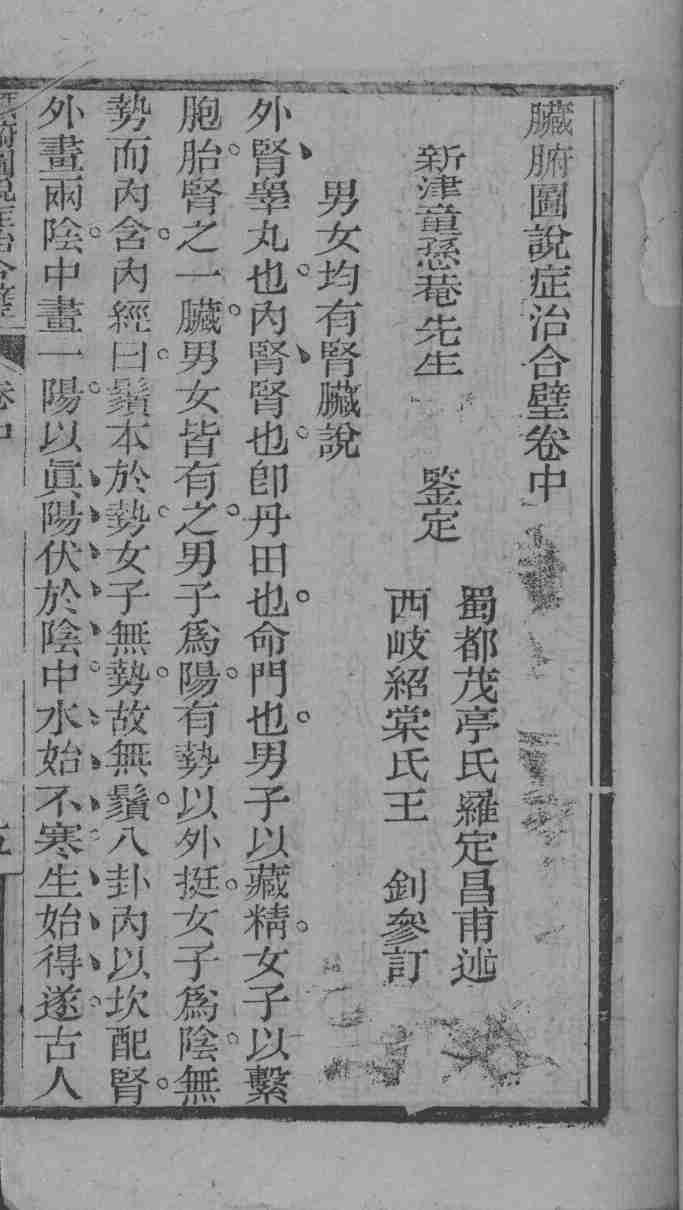 臟腑圖說症治合璧卷中
蜀都茂亭氏羅定昌甫述
新津童愻菴先生 鑒定
西岐紹棠氏王 釗參訂
男女均有腎臟說
外腎睾丸也內腎腎也卽丹田也命門也男子以藏精女子以繫
胞胎腎之一臟男女皆有之男子爲陽有勢以外挺女子爲陰無
勢而內含內經曰鬚本於勢女子無勢故無鬚八卦內以坎配腎
外畫兩陰中畫一陽以眞陽伏於陰中水始不寒生始得遂古人
臟腑圖說症治合璧 卷中